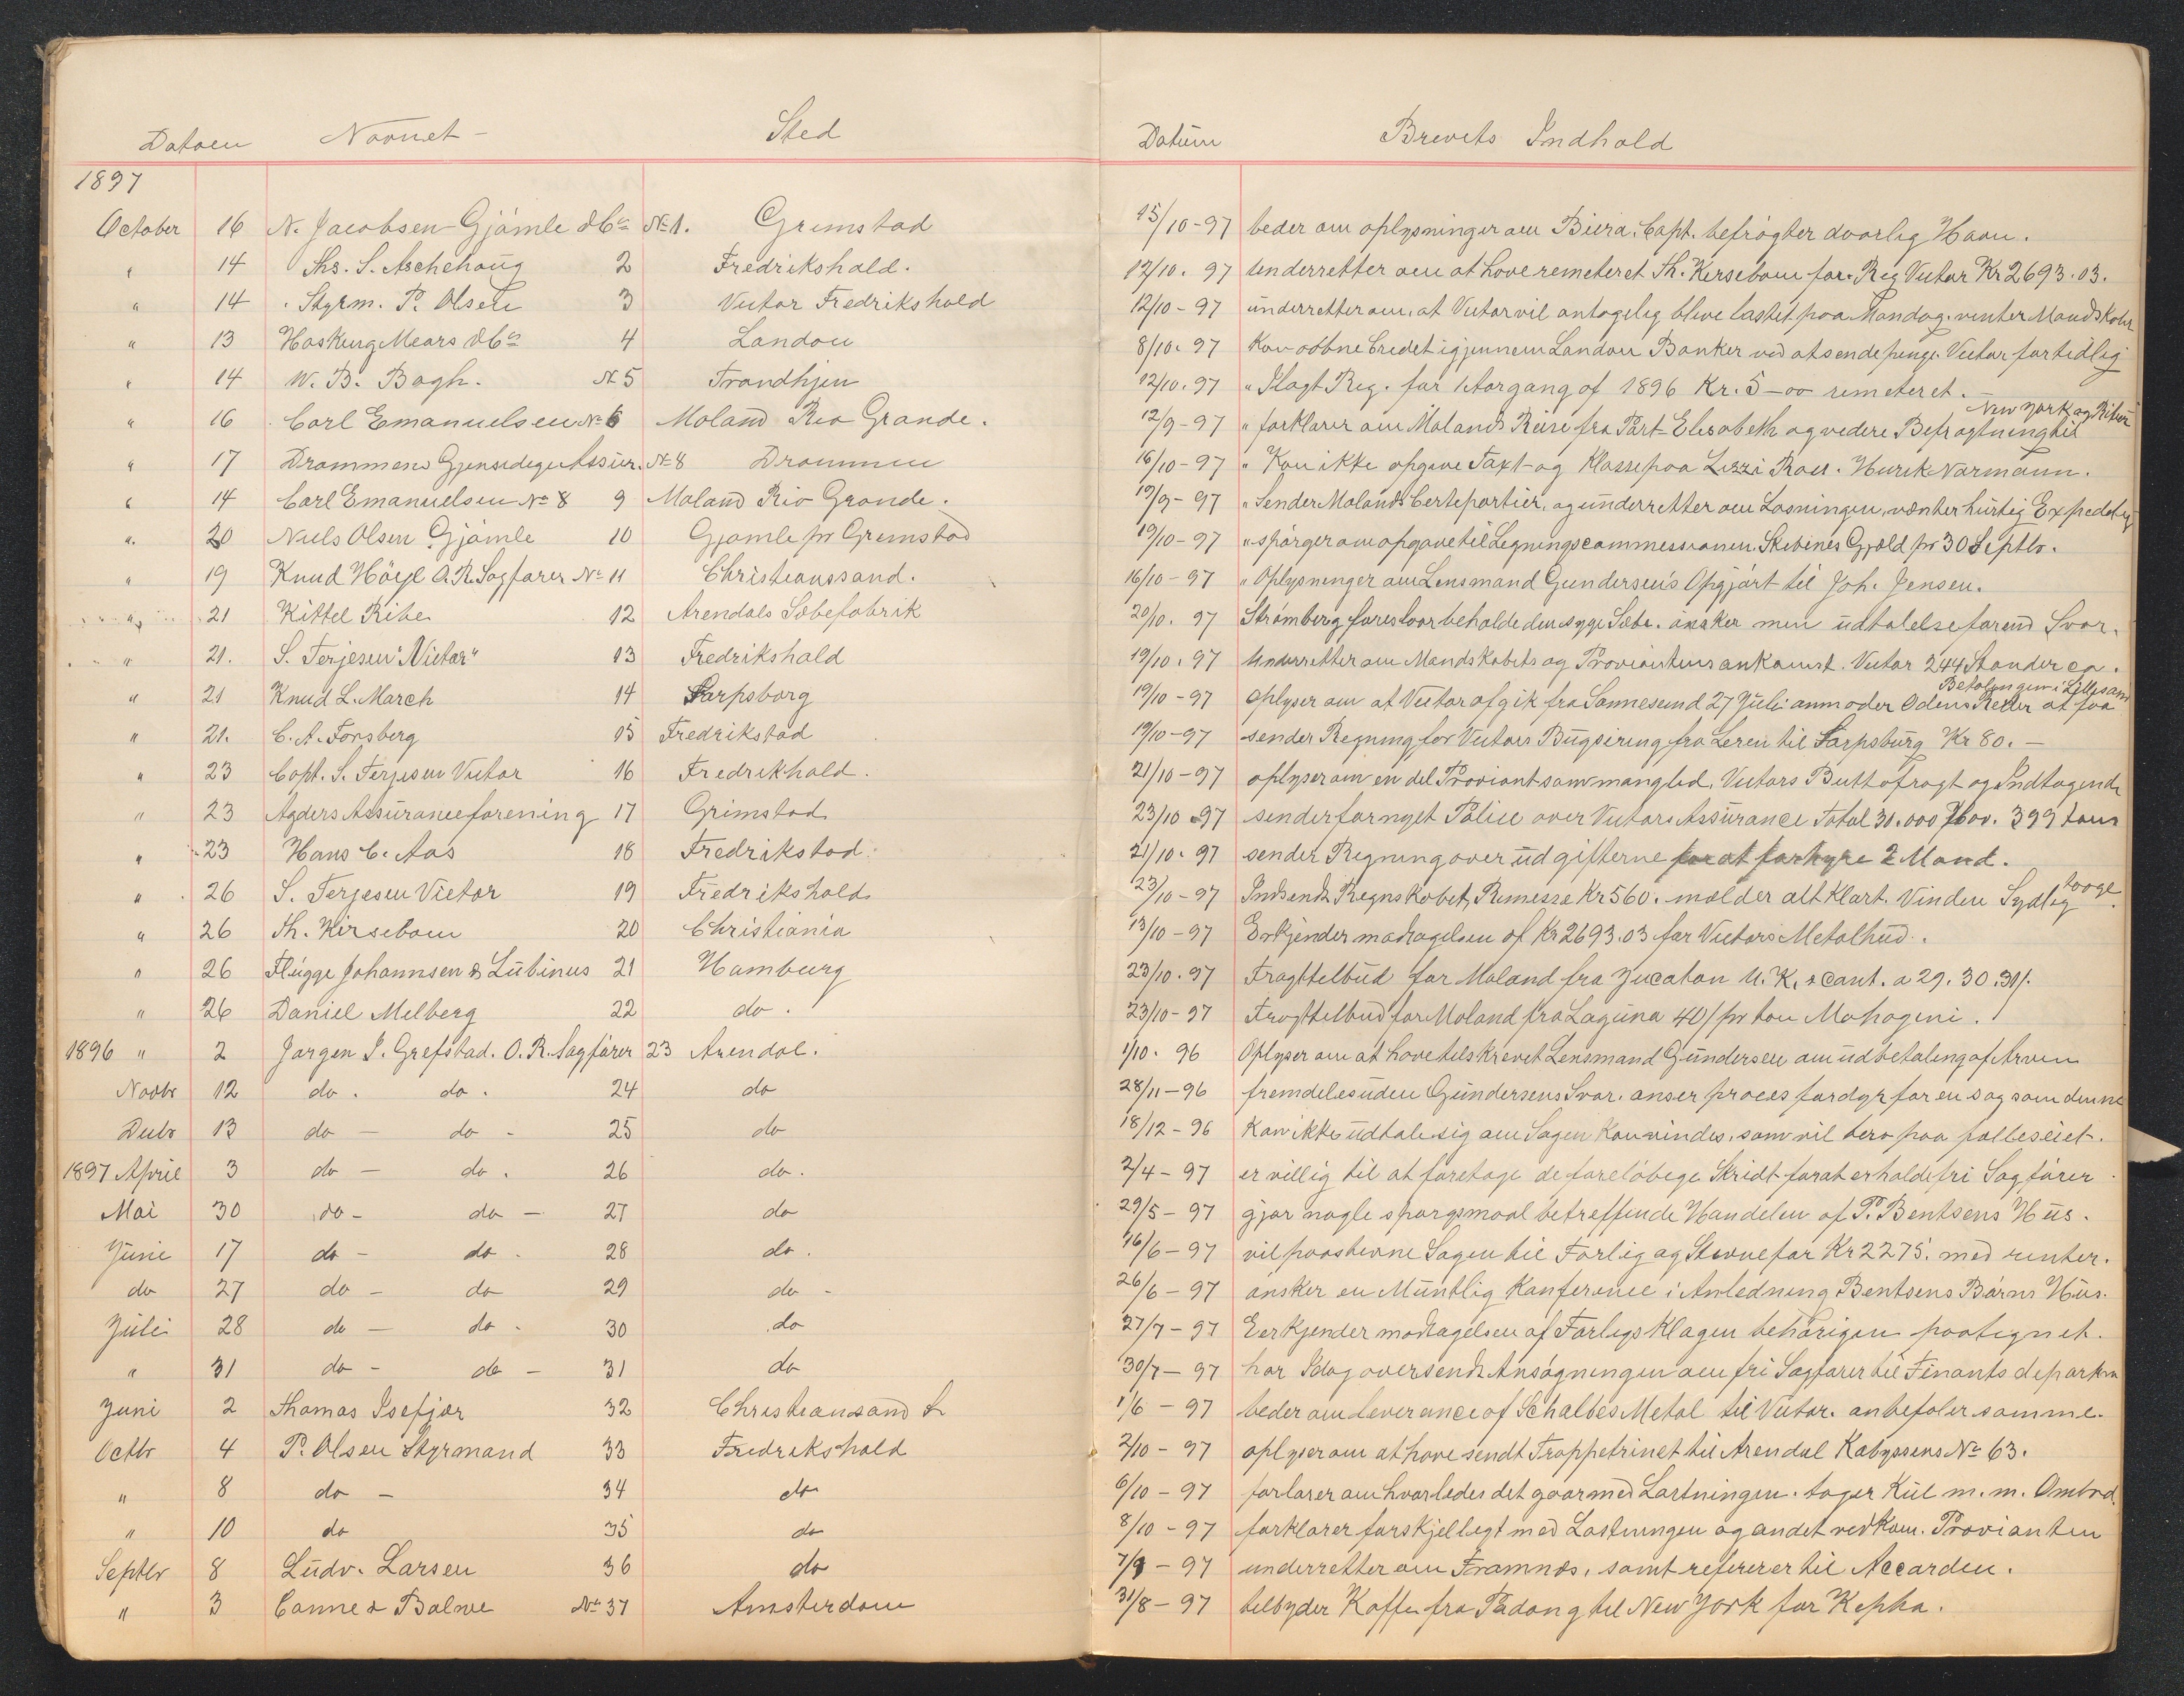 Datoen Navnet - Sted
1897
October 16 N. Jacobsen Gjömle & Co No 1. Grimstad
" 14 Ths. S. Aschehoug 2 Fredrikshald.
" 14 Styrm. P. Olsen 3 Victor Fredrikshald
" 13 Hasking Mears & Co 4 London
" 14 W. B. Bagh. No 5 Trondhjem
" 16 Carl Emanuelsen No 6 Moland Rio Grande.
" 17 Drammens Gjensidige Assur. No 8 Drammen
" 14 Carl Emanuelsen No 8 9 Moland Rio Grande.
" 20 Niels Olsen Gjömle 10 Gjömle pr Grimstad
" 19 Knud Höyl O. R. Sagförer No 11 Christianssand.
" 21 Kittel Ribe 12 Arendals Sæbefabrik
" 21. S. Terjesen "Victor" 13 Fredrikshald
" 21 Knud L. March 14 Sarpsborg
" 21. C. A. Forsberg 15 Fredrikstad
" 23 Capt. S. Terjesen Victor 16 Fredrikhald.
" 23 Agders Assuranceforening 17 Grimstad
" 23 Hans C. Aas 18 Fredrikstad
" 26 S. Terjesen Victor 19 Fredrikshald
" 26 Th. Kirsebom 20 Christiania
" 26 Flügge Johannsen & Lubinus 21 Hamburg
" 26 Daniel Melberg 22 do.
1896 " 2 Jørgen I. Grefstad. O. R. Sagförer 23 Arendal.
Novbr 12 do. do. 24 do
Decbr 13 do - do - 25 do
1897 April 3 do - do. 26 do.
Mai 30 do - do - 27 do
Juni 17 do - do - 28 do.
do 27 do - do 29 do -
Juli 28 do - do - 30 do
" 31 do - do - 31 do
Juni 2 Thomas Isefjær 32 Christiansand S
Octbr 4 P. Olsen Styrmand 33 Fredrikshald
" 8 do - 34 do
" 10 do 35 do
Septbr 8 Ludv. Larsen 36 do
" 3 Canne & Balwe No 37 Amsterdam
Datum Brevets Indhold
15/10-97 beder om oplysninger om Biera, Capt. befrögter daarlig Havn.
12/10. 97 underretter om at have remeteret Th. Kirsebom for Reg Victor Kr 2693.03.
12/10-97 underretter om, at Victor vil antagelig blive lastet paa Mandag. venter Mandskabr
8/10. 97 Kan aabne Credet igjennem London Banker ved at sende penge. Victor fortidlig
12/10. 97 " Flagt Reg. for 1 Aargang af 1896 Kr. 5-00 remeteret.
12/9-97 " forklarer om Molands Reise fra Port Elisabeth og videre Befragtning til New York og Ribun
16/10-97 " Kan ikke opgive Taxt og Klasse paa Lizzi Ross. Henrik Normann.
19/9-97 " Sender Molands Certepartier, og underretter om Losningen, venter hurtig Expedetig
19/10-97 " spörger om opgave til Legningscommessionen. Skibenes Gjæld pr 30 Septbr.
16/10-97 " Oplysninger om Lensmand Gundersen's Opgjört til Joh. Jensen.
20/10. 97 Strömberg foreslaar beholde den syge Sæbe. önsker min udtalelse forend Svar.
19/10. 97 Underretter om Mandskabets og Proviantens ankomst. Victor 244 Stander ca.
19/10-97 oplyser om at Victor afgik fra Sannesund 27 Juli anmoder Odens Reder at faa Betalingen i Lillesan
19/10-97 sender Regning for Victors Bugsering fra Leren til Sarpsburg Kr 80.-
21/10-97 oplyser om en del Proviant som mangled, Victors Buttofragt og Indtagende
23/10-97 sender fornyet Police over Victors Assurance Total 30.000 Hav. 399 tons
21/10. 97 sender Regning over udgifterne for at forhyre 2 Mand.
23/10-97 Indsendt Regnskabet, Remesse Kr 560. melder alt Klart. Vinden Sydlig taage.
13/10-97 Erkjender modtagelsen af Kr 2693.03 for Victors Metalhud.
23/10. 97 Fragttelbud for Moland fra Yucatan U. K. & Cont. a 29. 30. 31/.
23/10-97 Fragttelbud for Moland fra Laguna 40/ pr ton Mahogeni.
1/10. 96 Oplyser om at have telskrevet Lensmand Gundersen om udbetaling af Arven
28/11-96 fremdeles uden Gundersens Svar. anser proces for dyr for en sag som denne
18/12-96 Kan ikke udtale sig om Sagen Kan vindes, som vil bero paa
2/4-97 er villig til at foretage de forelöbege Skridt for at erholde fri Sagförer.
29/5-97 gjör nogle spörgsmaal betreffende Handelen af P. Bentsens Hus.
16/6-97 vil paastevne Sagen til Forlig og Stevne for Kr 2275. med renter.
26/6-97 önsker en Muntlig Konferance i Anledning Bentsens Börns Hus.
27/7-97 Eerkjender modtagelsen af Forligs Klagen behörigen paategnet.
30/7-97 har Idag oversendt Ansögningen om fri Sagförer til Finants departm
1/6-97 beder om Leverance af Schalbes Metal til Victor. anbefaler samme.
2/10-97 oplyser om at have sendt Trappetrinet til Arendal Kabyssens No 63.
6/10-97 forlarer om hvorledes det gaar med Lastningen. tager Kul m. m. Ombord.
8/10-97 forklarer forskjelligt med Lastningen og andet vedkom. Provianten
7/9-97 underretter om Framnæs, samt refererer til Accorden.
31/8-97 telbyder Kaffe fra Padang til New York for Kepha.